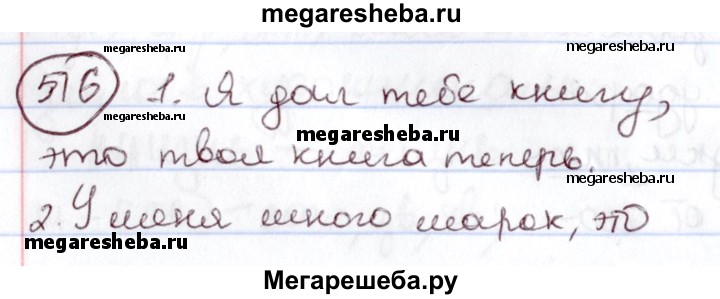 megaresheba.ru
megaresheba.ru
megaresheba.ru
516 1. Я дал тебе книгу,
megaresheba.ru
это твоя книга теперь.
megaresheba.ru
2. У меня много марок, это
megaresheba.ru
Мегарешеба.ру